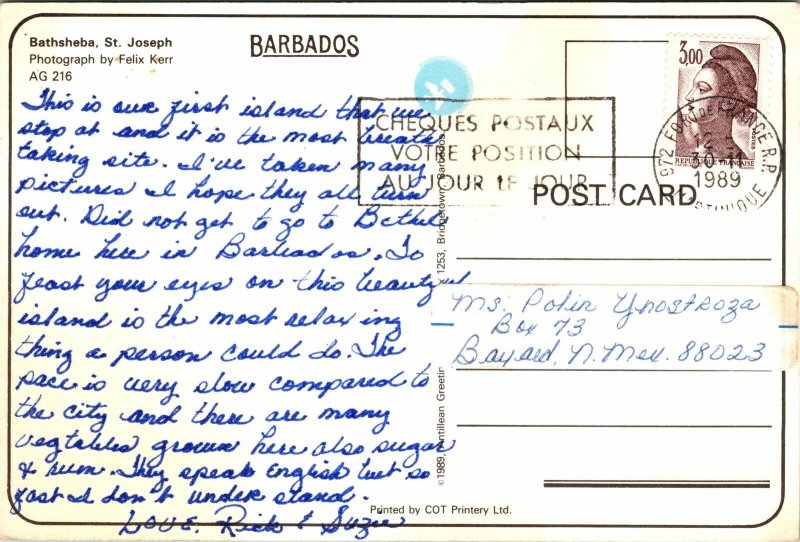 Bathsheba, St. Joseph
Photograph by Felix Kerr
AG 216
BARBADOS
This is our first island that we
stop at and it is the most breath
taking site. I've taken many
pictures I hope they all turn
out. Did not get to go to Bethel
home here in Barbados. To
feast your eyes on this beautiful
island is the most relaxing
thing a person could do. The
pace is very slow compared to
the city and there are many
vegtables grown here also sugar
& rum. They speak English but so
fast I don't under stand.
Love, Rick & Suzie
CHEQUES POSTAUX
VOTRE POSITION
AU JOUR LE JOUR
3,00
POSTES
REPUBLIQUE FRANÇAISE
972 FORT DE FRANCE R.P.
1989
MARTINIQUE
POST CARD
Ms. Polin Ynostroza
Box 73
Bayard, N. Mex. 88023
©1989, Antillean Greetin 1253, Bridgetown, Barbados
Printed by COT Printery Ltd.